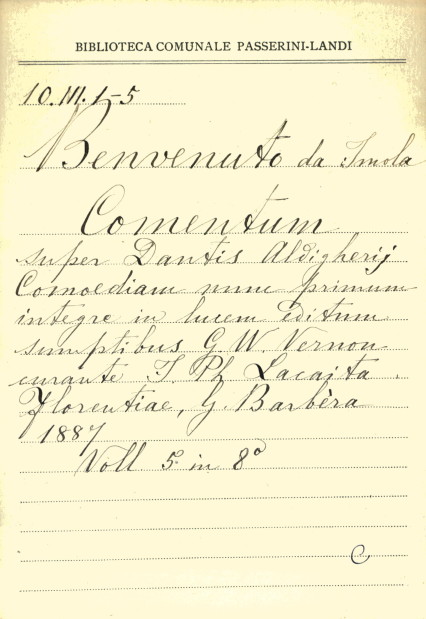 BIBLIOTECA COMUNALE PASSERINI-LANDI
10.III.1-5
Benvenuto da Imola
Comentum
super Dantis Aldigherij
Comoediam nunc primum
integre in lucem editum
sumptibus G. W. Vernon
curante J. Ph. Lacaita.
Florentiae, G. Barbèra
1887
Voll 5 in 8º
C